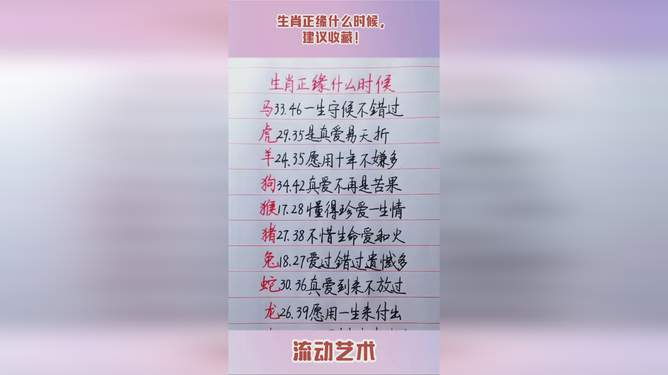 生肖正缘什么时候，
建议收藏！
生肖正缘什么时候
马33.46一生守候不错过
虎29.35是真爱易夭折
羊24.35愿用十年不嫌多
狗34.42真爱不再是苦果
猴17.28懂得珍爱一生情
猪27.38不惜生命爱和火
兔18.27爱过错过遗憾多
蛇30.36真爱到来不放过
龙26.39愿用一生来付出
流动艺术